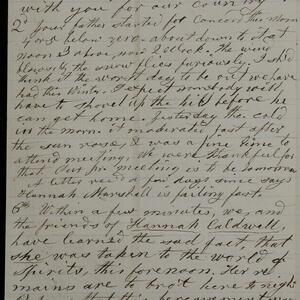 with you for our Country
2d your father started for Concord this morn
4 or 5 below zero. about down to that
noon & above, now 2 o'clock. The wind
blows & the snow flies furiously. I sh'd
think it the worst day to be out we have
had this Winter. I expect somebody will
have to shovel up the hill before he
can get home. Yesterday tho. cold
in the morn. it moderated fast after
the sun rose, & was a fine time to
attend meeting. We were thankful for
that. Our pr. meeting is to be tomorrow
A letter rec'd a few days since says
Hannah Marshall is failing fast.
6th Within a few minutes, we, and
the friends of Hannah Caldwell,
have learned the sad fact that
she was taken to the world of
Spirits, this forenoon. Her re
mains are to bro't here to night
that this